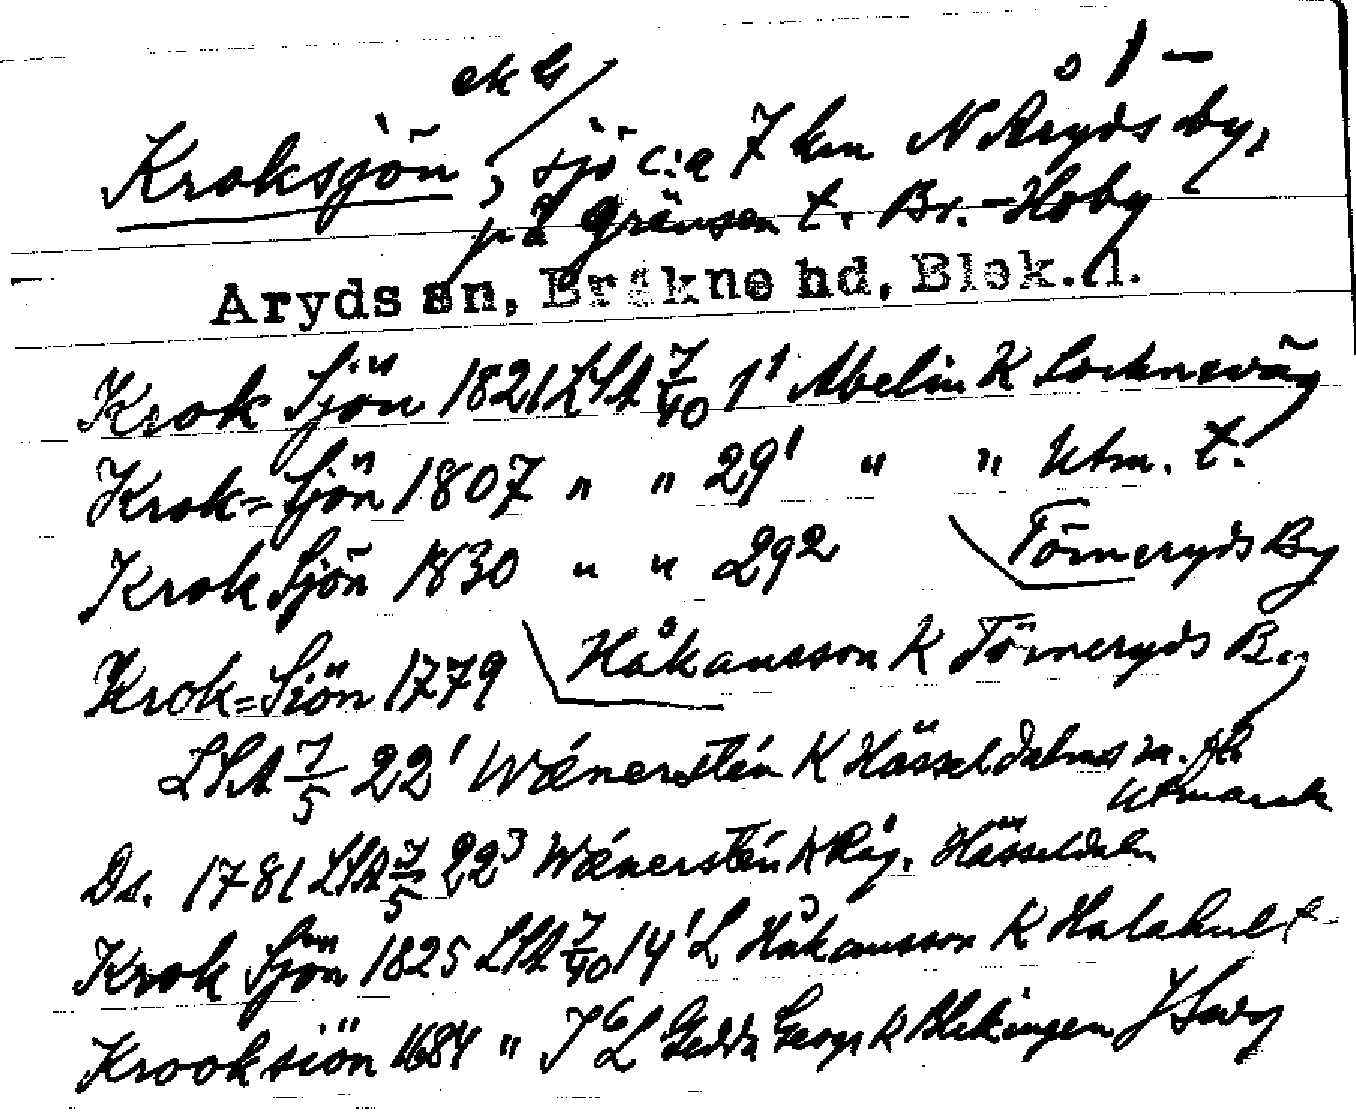 ek G
Kroksjön, sjö c:a 7 km N Aryds by,
på gränsen t. Br.-Hoby
Aryds sn, Bräkne hd, Blek. l.
Krok Sjön 1821 LSA 7/40 1¹ Abelin K
Krok=Sjön 1807 " " 29¹ " " Utm. t.
Krok Sjön 1830 " " 29² Törneryds By
Krok=Siön 1779 Håkansson K Törneryds By
LSA 7/5 22¹ Wænerstén K Hässeldahns m. fl. utmark
Ds. 1781 LSA 7/5 22³ Wænerstén K Råg. Hässeldaln
Krok Sjön 1825 LSA 7/40 14¹ L Håkansson K Halahult
Krooksiön 1684 " Gedda K Blekingen